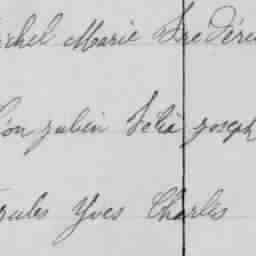 ichel Marie Frédéric
Léon julien Félix joseph
Jules Yves Charles